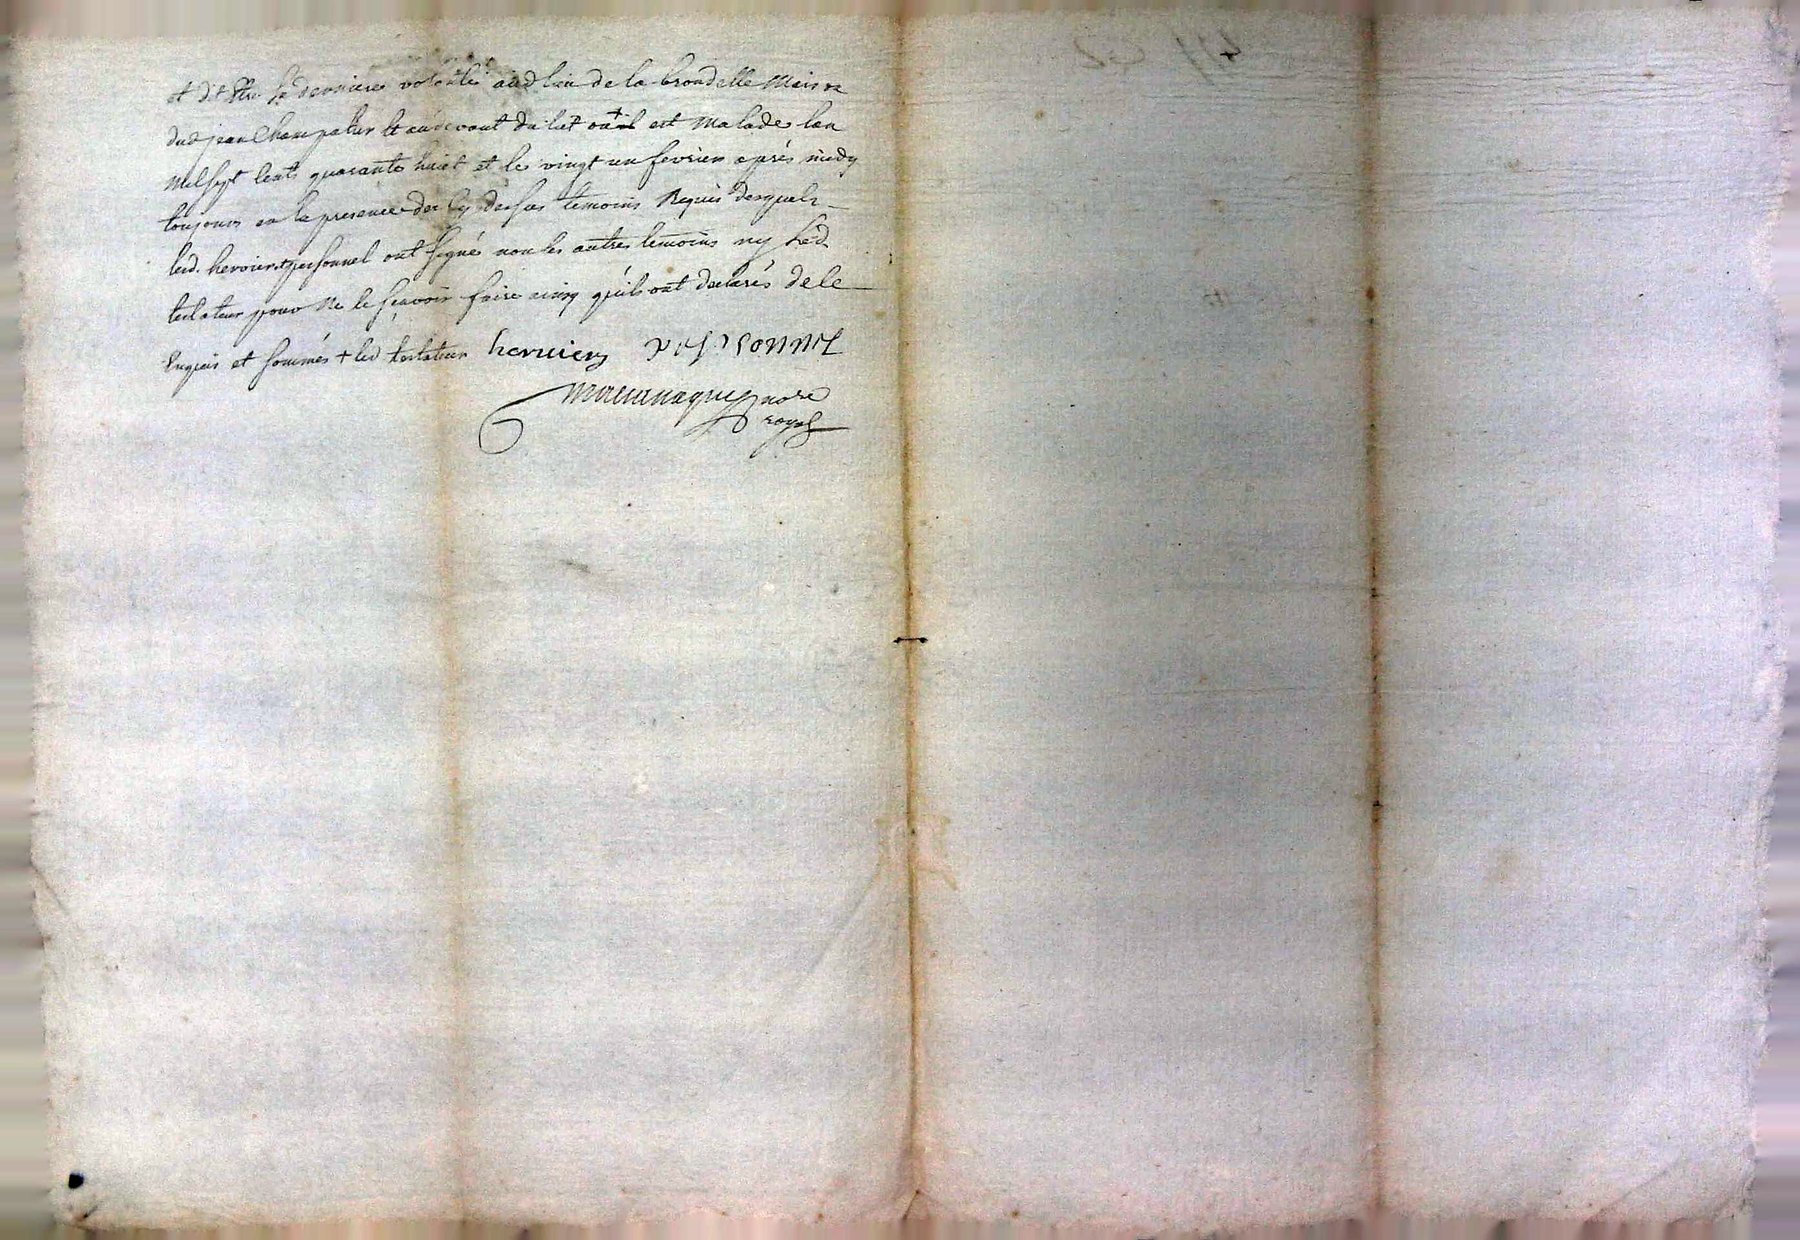 et dit estre sa derniere volonté aud lieu de la brondelle Maison
dud jean Champ et au devant du lit ou il est malade lan
mil sept cents quarante huiet et le vingt un fevrier après midy
toujours en la presence des cy dessus temoins Requis desquels
led. hervier et personnel ont signé non les autres temoins ny led
testateur pour ne le sçavoir faire ainsy quils ont declarés de ce
Enquis et sommés + led testateur herviers
nore
royal